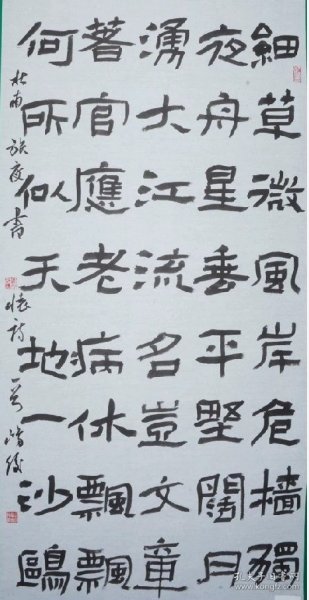 細草微風岸危檣獨
夜舟星垂平墅闊月
湧大江流名豈文章
著官應老病休飄飄
何所似天地一沙鷗
杜甫旅夜書懷詩
孔夫子旧书网